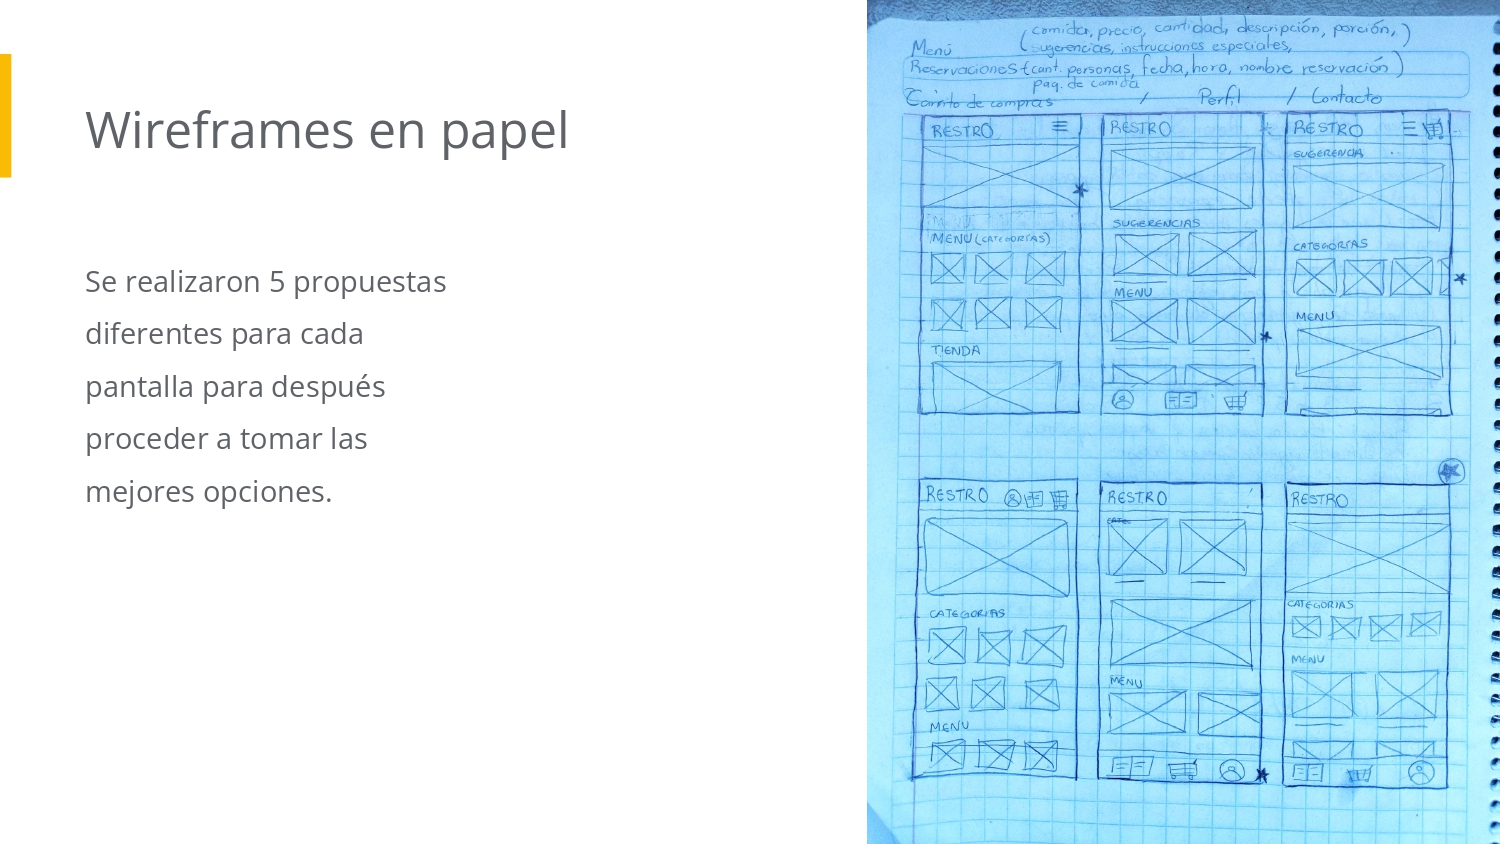 Wireframes en papel
Se realizaron 5 propuestas
diferentes para cada
pantalla para después
proceder a tomar las
mejores opciones.
(comida, precio, cantidad, descripción, porción,)
Menú
sugerencias, instrucciones especiales,
Reservaciones (cant. personas, fecha, hora, nombre reservación)
pag. de comida
Carrito de compras / Perfil / Contacto
RESTRO
MENU (CATEGORIAS)
TIENDA
RESTRO
SUGERENCIAS
MENU
RESTRO
SUGERENCIA
CATEGORIAS
MENU
RESTRO
CATEGORIAS
MENU
RESTRO
MENU
RESTRO
CATEGORIAS
MENU